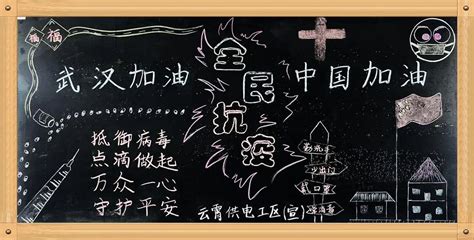 福
福
武汉加油
全民抗疫
中国加油
抵御病毒
点滴做起
万众一心
守护平安
勤洗手
少出门
戴口罩
云霄供电工区(宣)